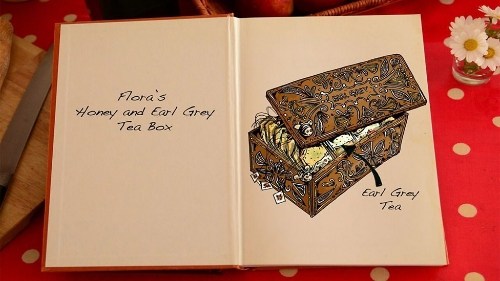 Flora's
Honey and Earl Grey
Tea Box
Earl Grey
Tea